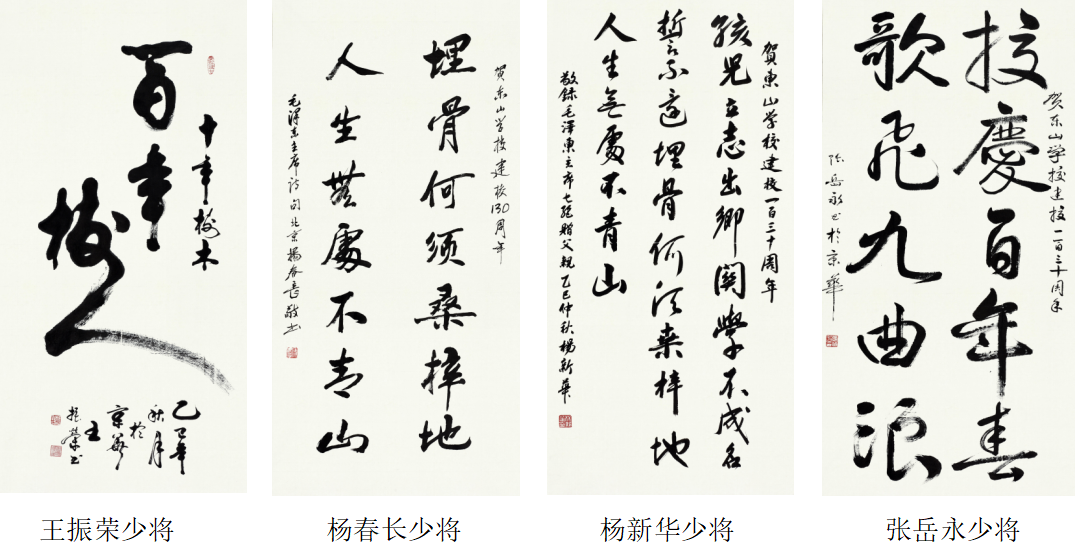 十年樹木
百年
樹人
乙巳年
秋月於
京華
王
振榮书
贺东山学校建校130周年
埋骨何须桑梓地
人生無處不青山
毛泽东主席诗句北京楊春長敬书
賀東山学校建校一百三十周年
孩兒立志出鄉関學不成名
誓不还埋骨何须桑梓地
人生無處不青山
敬錄毛澤東主席七绝贈父親乙巳仲秋楊新華
贺东山学校建校一百三十周年
校慶百年春
歌飛九曲浪
张岳永书於京華
王振荣少将
杨春长少将
杨新华少将
张岳永少将